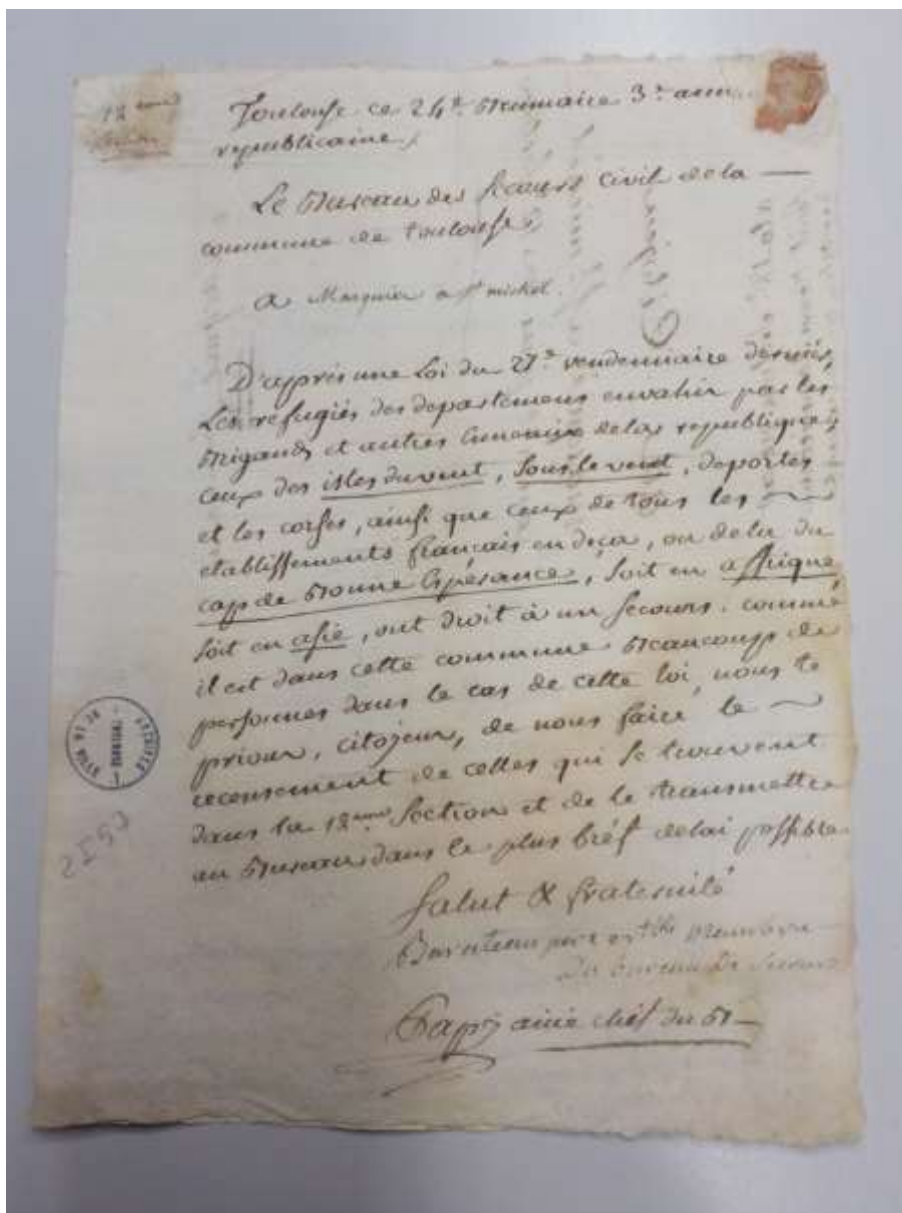 12eme
Section
Toulouse ce 24e. Brumaire 3e. année
republicaine,
Le Bureau des secours civil de la —
commune de toulouse,
a Marquier a st michel.
D'après une Loi du 27e vendemiaire dernier,
Les refugiés des departemens envahis par les
Brigands et autres Ennemis de la republique,
ceux des isles du vent, sous le vent, deportés
et les corses, ainsi que ceux de tous les
etablissements français en deça, ou dela du
cap de Bonne Espérance, soit en affrique,
soit en asie, ont droit à un secours. comme
il est dans cette commune Beaucoup de
personnes dans le cas de cette loi, nous te
prions, citoyen, de nous faire le
recensement de celles qui se trouvent
dans la 12eme section et de le transmettre
au Bureau dans le plus bréf delai possible
Salut & fraternité
pere
du bureau de secours
Papy ainé chef du B—
ARCHIVES
DE LA VILLE
2I50